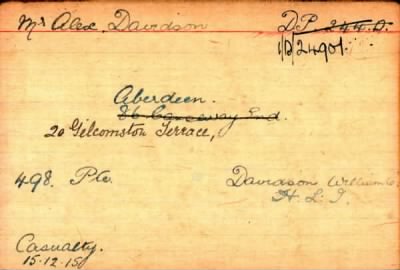 Mr Alex. Davidson
D.P. 244.D.
1/D/24901.
Aberdeen.
86 Causeway End.
20 Gilcomston Terrace,
498. Pte. Davidson William
H. L. I.
Casualty.
15.12.15